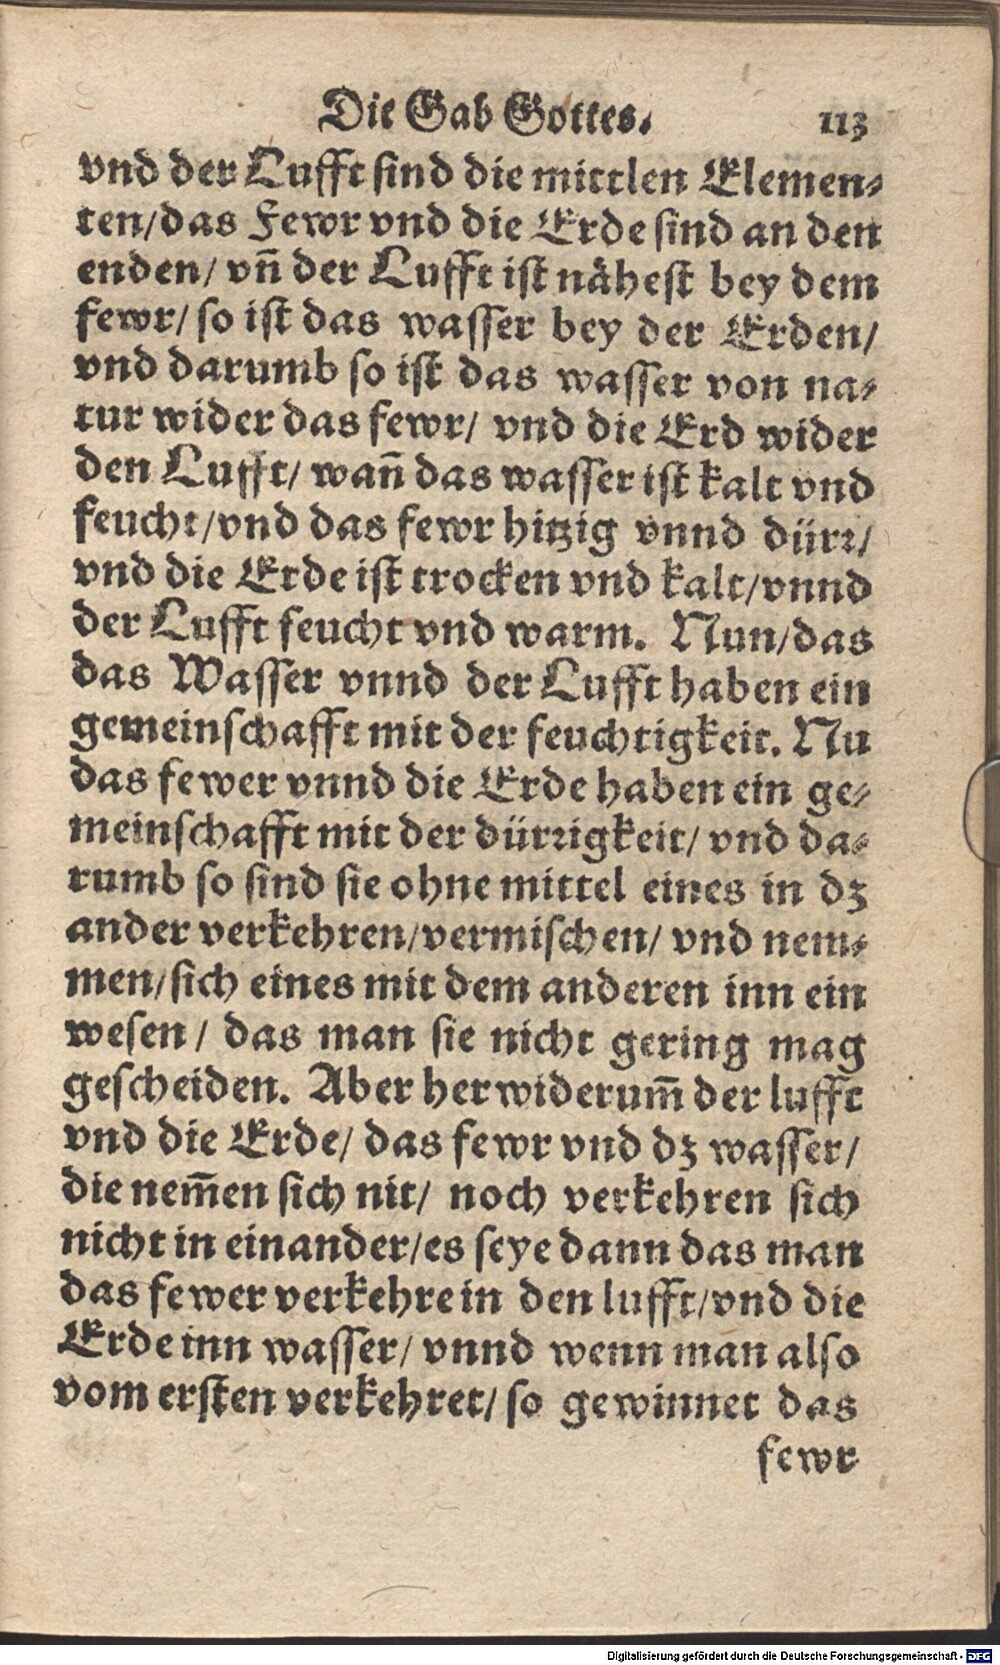 Die Gab Gottes. 113
vnd der Lufft sind die mittlen Elemen⸗
ten/das Fewr vnd die Erde sind an den
enden/ vn̄ der Lufft ist nähest bey dem
fewr/ so ist das wasser bey der Erden/
vnd darumb so ist das wasser von na⸗
tur wider das fewr/ vnd die Erd wider
den Lufft/ wan̄ das wasser ist kalt vnd
feucht/vnd das fewr hitzig vnnd dürr/
vnd die Erde ist trocken vnd kalt/vnnd
der Lufft feucht vnd warm. Nun/das
das Wasser vnnd der Lufft haben ein
gemeinschafft mit der feuchtigkeit. Nu
das fewer vnnd die Erde haben ein ge⸗
meinschafft mit der dürrigkeit/ vnd da⸗
rumb so sind sie ohne mittel eines in dz
ander verkehren/vermischen/ vnd nem⸗
men/sich eines mit dem anderen inn ein
wesen/ das man sie nicht gering mag
gescheiden. Aber herwiderum̄ der lufft
vnd die Erde/ das fewr vnd dz wasser/
die nem̄en sich nit/ noch verkehren sich
nicht in einander/es seye dann das man
das fewer verkehre in den lufft/vnd die
Erde inn wasser/ vnnd wenn man also
vom ersten verkehret/ so gewinnet das
fewr
Digitalisierung gefördert durch die Deutsche Forschungsgemeinschaft - DFG